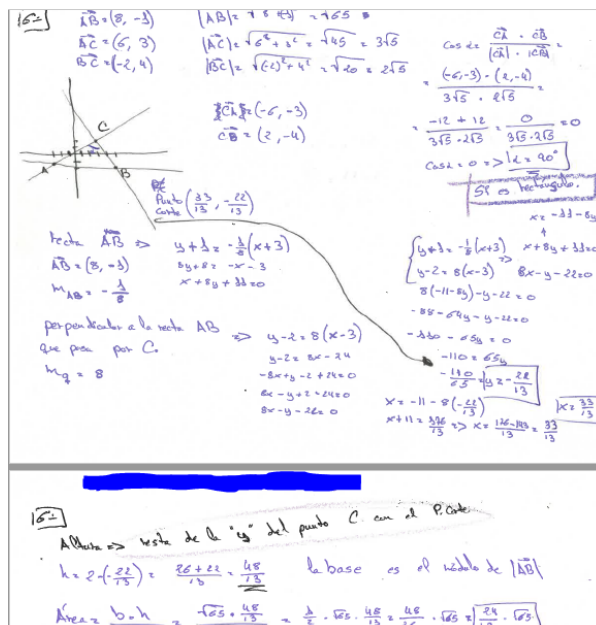 16÷
AB = (8, -1)
AC = (6, 3)
BC = (-2, 4)
|AB| = √65
|AC| = √6² + 3² = √45 = 3√5
|BC| = √(-2)² + 4² = √20 = 2√5
CA = (-6, -3)
CB = (2, -4)
Cos α = CA · CB / |CA| · |CB| =
= (-6, -3) · (2, -4) / 3√5 · 2√5 =
= -12 + 12 / 3√5 · 2√5 = 0 / 3√5 · 2√5 = 0
Cos α = 0 => α = 90°
Sí es rectángulo.
A
B
C
Punto Corte (33/13, -22/13)
recta AB =>
AB = (8, -1)
m AB = -1/8
y + 1 = -1/8 (x + 3)
8y + 8 = -x - 3
x + 8y + 11 = 0
perpendicular a la recta AB
que pasa por C.
m q = 8
=> y - 2 = 8 (x - 3)
y - 2 = 8x - 24
-8x + y - 2 + 24 = 0
8x - y + 2 - 24 = 0
8x - y - 22 = 0
x = -11 - 8y
y + 1 = -1/8 (x + 3) => x + 8y + 11 = 0
y - 2 = 8 (x - 3) 8x - y - 22 = 0
8 (-11 - 8y) - y - 22 = 0
-88 - 64y - y - 22 = 0
-110 - 65y = 0
-110 = 65y
-110/65 = y = -22/13
x = -11 - 8 (-22/13)
x = 33/13
x + 11 = 176/13 => x = 176 - 143 / 13 = 33/13
16÷
Altura => resta de la "y" del punto C con el P. Corte
h = 2 - (-22/13) = 26 + 22 / 13 = 48/13
la base es el módulo de |AB|
Área = b · h = √65 · 48/13 = 1/2 · √65 · 48/13 = 48/26 · √65 = 24/13 · √65